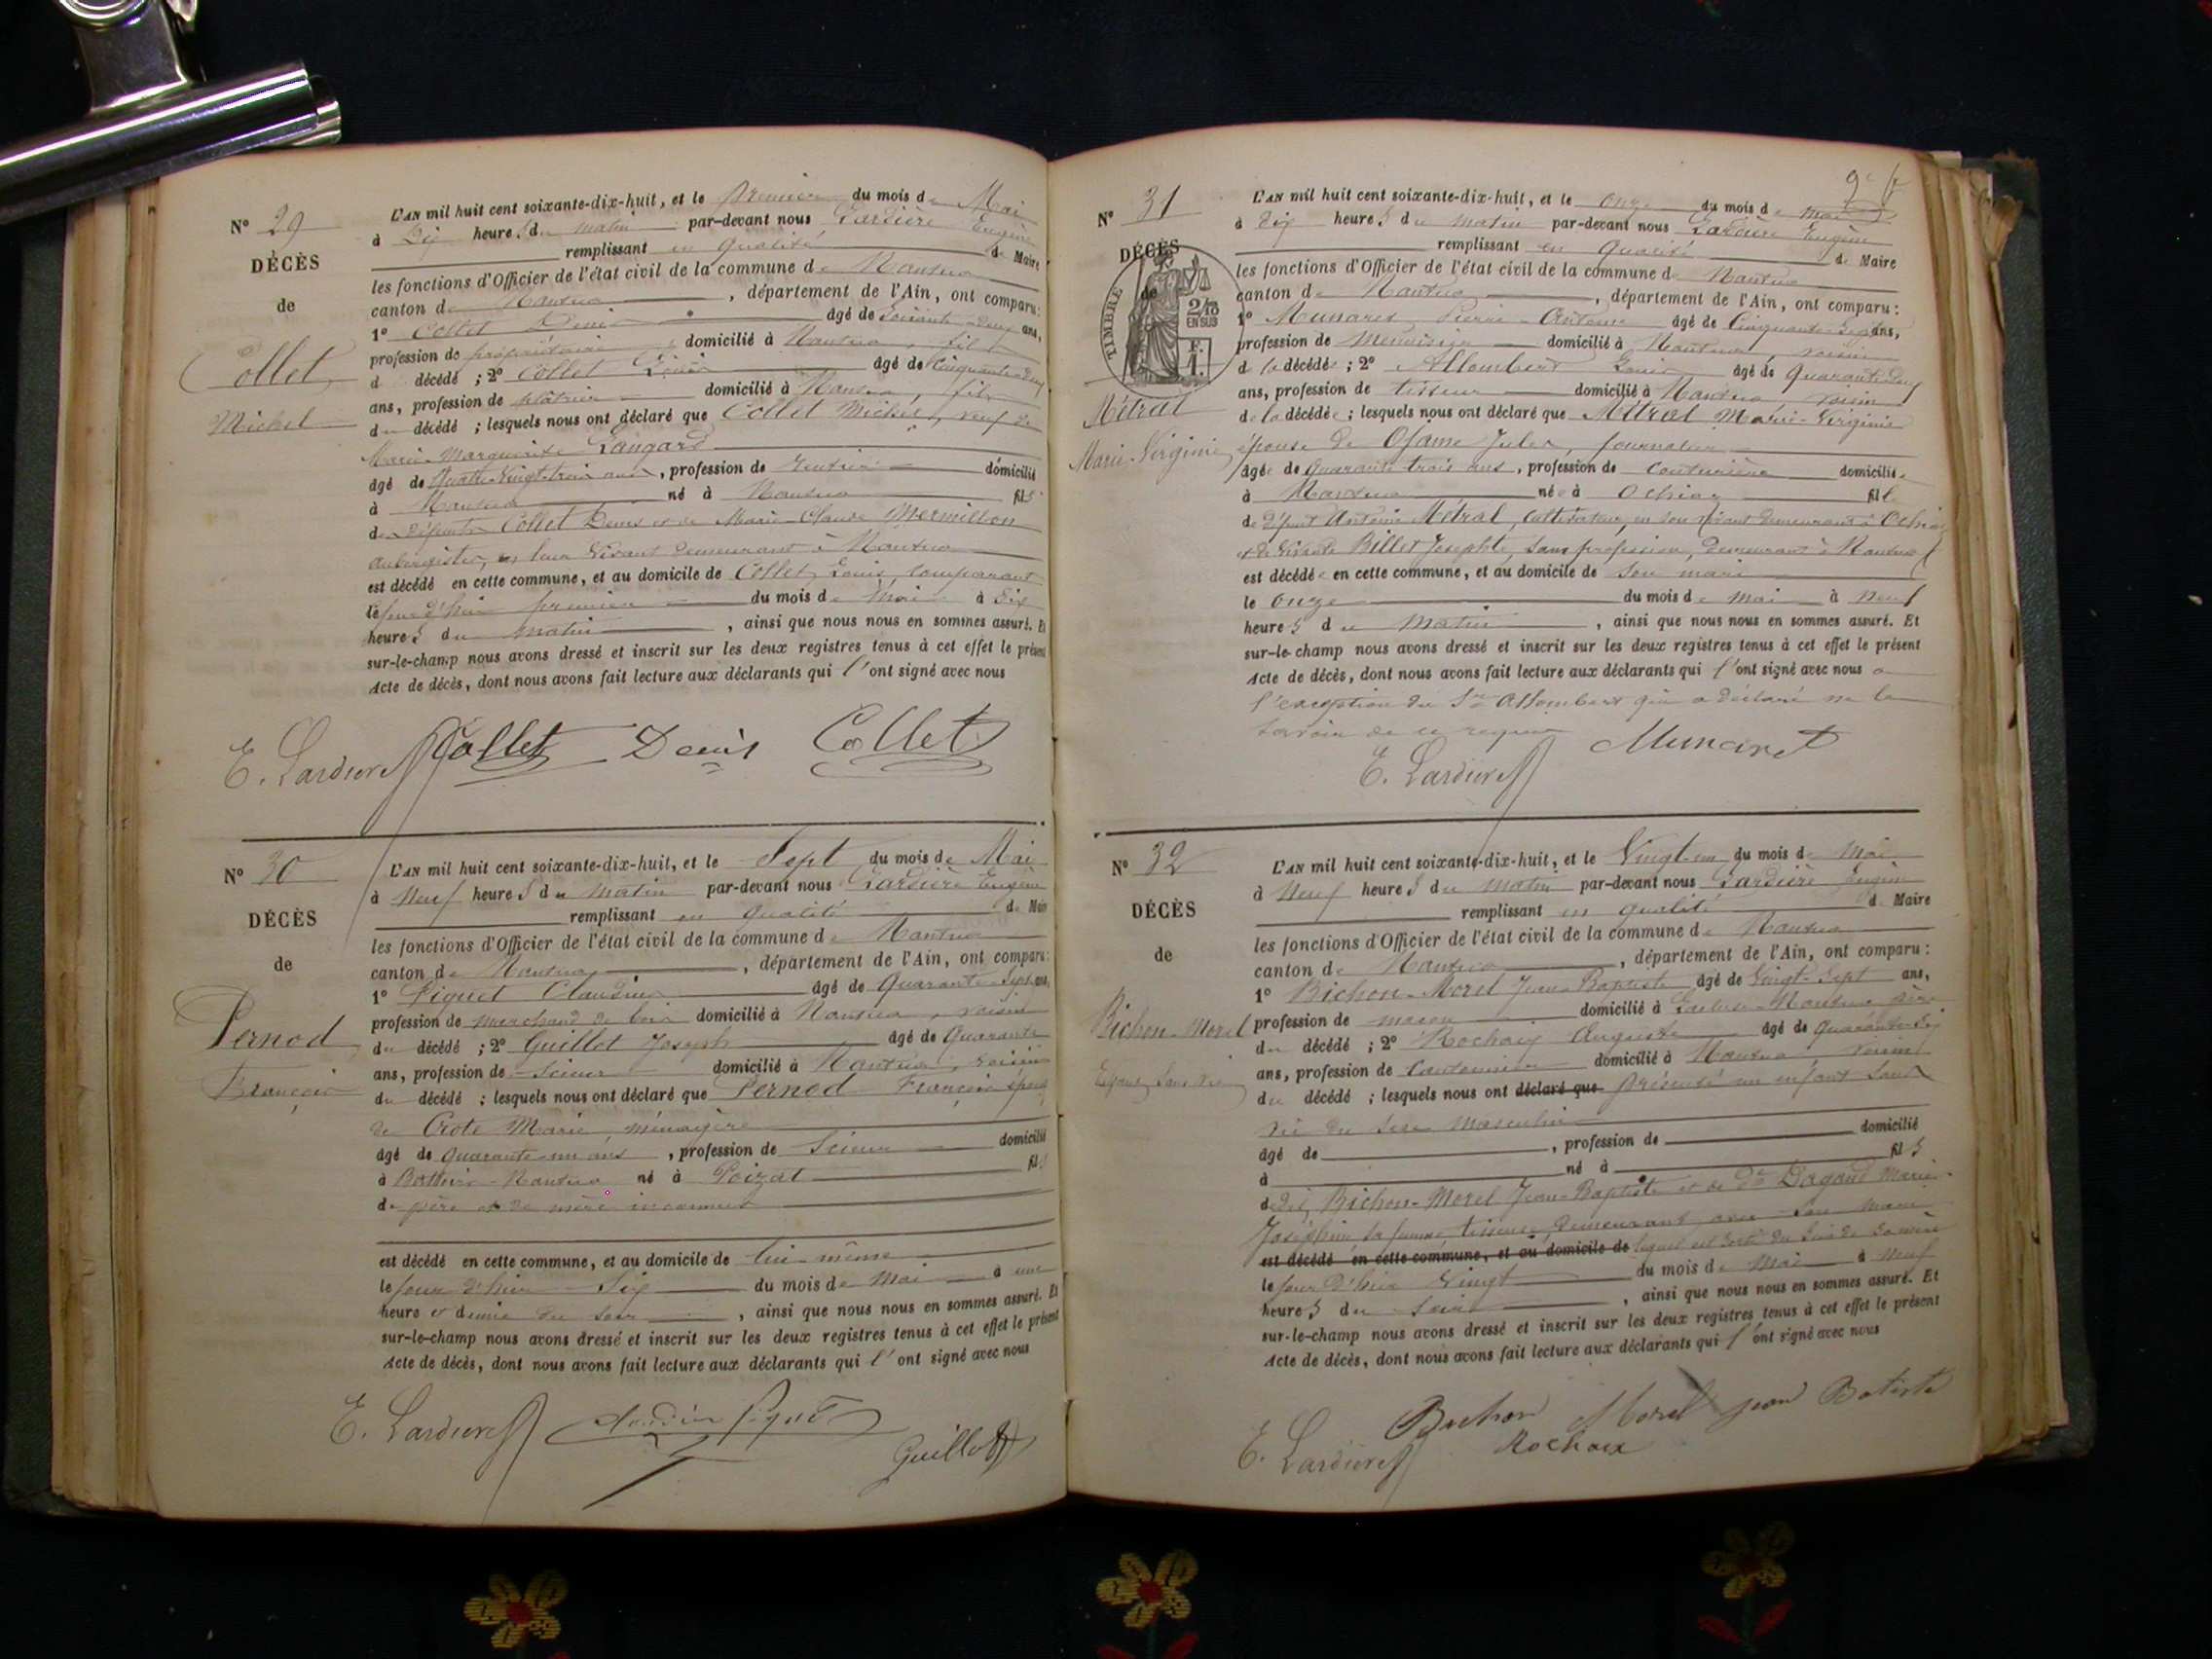 N° 29
DÉCÈS
de
Collet
Michel
L'AN mil huit cent soixante-dix-huit, et le Premier du mois de Mai
à Dix heures du matin par-devant nous Lardière Eugène
remplissant en qualité de Maire
les fonctions d'Officier de l'état civil de la commune de Nantua
canton de Nantua, département de l'Ain, ont comparu:
1° Collet Denis âgé de Soixante-deux ans,
profession de propriétaire, domicilié à Nantua, fils
d décédé ; 2° Collet Louis âgé de Cinquante-deux
ans, profession de plâtrier domicilié à Nantua, fils
du décédé ; lesquels nous ont déclaré que Collet Michel, veuf de
Marie-Marguerite Langard
âgé de Quatre-Vingt-trois ans, profession de rentier domicilié
à Nantua né à Nantua fils
de défunts Collet Denis et de Marie-Claude Mermillon
aubergistes, en leur vivant demeurant à Nantua
est décédé en cette commune, et au domicile de Collet Louis, comparant
le jour d'hui premier du mois de Mai à Dix
heures du matin, ainsi que nous nous en sommes assuré. Et
sur-le-champ nous avons dressé et inscrit sur les deux registres tenus à cet effet le présent
Acte de décès, dont nous avons fait lecture aux déclarants qui l'ont signé avec nous
E. Lardière Collet Denis Collet
N° 30
DÉCÈS
de
Pernod
François
L'AN mil huit cent soixante-dix-huit, et le Sept du mois de Mai
à Neuf heures du matin par-devant nous Lardière Eugène
remplissant en qualité de Maire
les fonctions d'Officier de l'état civil de la commune de Nantua
canton de Nantua, département de l'Ain, ont comparu:
1° Piquet Claudius âgé de Quarante-Sept ans,
profession de marchand de bois domicilié à Nantua, voisin
du décédé ; 2° Guillot Joseph âgé de Quarante
ans, profession de Scieur domicilié à Nantua, voisin
du décédé ; lesquels nous ont déclaré que Pernod François époux
de Crote Marie, ménagère
âgé de quarante-un ans, profession de Scieur domicilié
à Nantua né à Poizat fils
de père et de mère inconnus
est décédé en cette commune, et au domicile de lui-même
le jour d'hier Six du mois de Mai à une
heure et demie du soir, ainsi que nous nous en sommes assuré. Et
sur-le-champ nous avons dressé et inscrit sur les deux registres tenus à cet effet le présent
Acte de décès, dont nous avons fait lecture aux déclarants qui l'ont signé avec nous
E. Lardière Claudius Piquet
Guillot
9e
N° 31
DÉCÈS
de
TIMBRE
2/10
EN SUS
F.
1.
Métral
Marie-Virginie
L'AN mil huit cent soixante-dix-huit, et le onze du mois de mai
à Dix heures du matin par-devant nous Lardière Eugène
remplissant en qualité de Maire
les fonctions d'Officier de l'état civil de la commune de Nantua
canton de Nantua, département de l'Ain, ont comparu:
1° Munaret Pierre-Antoine âgé de Cinquante-Sept ans,
profession de Menuisier domicilié à Nantua, voisin
de la décédée ; 2° Allombert Louis âgé de Quarante-deux
ans, profession de tisseur domicilié à Nantua, voisin
de la décédée ; lesquels nous ont déclaré que Métral Marie-Virginie
épouse de Jules, journalier
âgée de quarante trois ans, profession de couturière domiciliée
à Nantua née à Ochiaz fille
de défunt Antoine Métral, cultivateur, en son vivant demeurant à Ochiaz
et de Billet Josephte, sans profession, demeurant à Nantua
est décédée en cette commune, et au domicile de son mari
le onze du mois de mai à neuf
heures du matin, ainsi que nous nous en sommes assuré. Et
sur-le-champ nous avons dressé et inscrit sur les deux registres tenus à cet effet le présent
Acte de décès, dont nous avons fait lecture aux déclarants qui l'ont signé avec nous a
l'exception du Sr Allombert qui a déclaré ne le
savoir de ce requis
E. Lardière Munaret
N° 32
DÉCÈS
de
Bichon-Morel
Enfant sans vie
L'AN mil huit cent soixante-dix-huit, et le Vingt-un du mois de Mai
à Neuf heures du matin par-devant nous Lardière Eugène
remplissant en qualité de Maire
les fonctions d'Officier de l'état civil de la commune de Nantua
canton de Nantua, département de l'Ain, ont comparu:
1° Bichon-Morel Jean-Baptiste âgé de Vingt-Sept ans,
profession de maçon domicilié à Nantua père
du décédé ; 2° Rochaix Auguste âgé de quarante-six
ans, profession de Cantonnier domicilié à Nantua, voisin
du décédé ; lesquels nous ont déclaré que présenté un enfant sans
vie du sexe Masculin
âgé de, profession de domicilié
à né à fils
dudit Bichon-Morel Jean-Baptiste et de De Dagand Marie-
Joséphine sa femme, tisseuse, demeurant avec son mari
est décédé en cette commune, et au domicile de lequel est sorti du sein de sa mère
le jour d'hier Vingt du mois de Mai à neuf
heures du Soir, ainsi que nous nous en sommes assuré. Et
sur-le-champ nous avons dressé et inscrit sur les deux registres tenus à cet effet le présent
Acte de décès, dont nous avons fait lecture aux déclarants qui l'ont signé avec nous
Bichon Morel jean Batiste
E. Lardière Rochaix